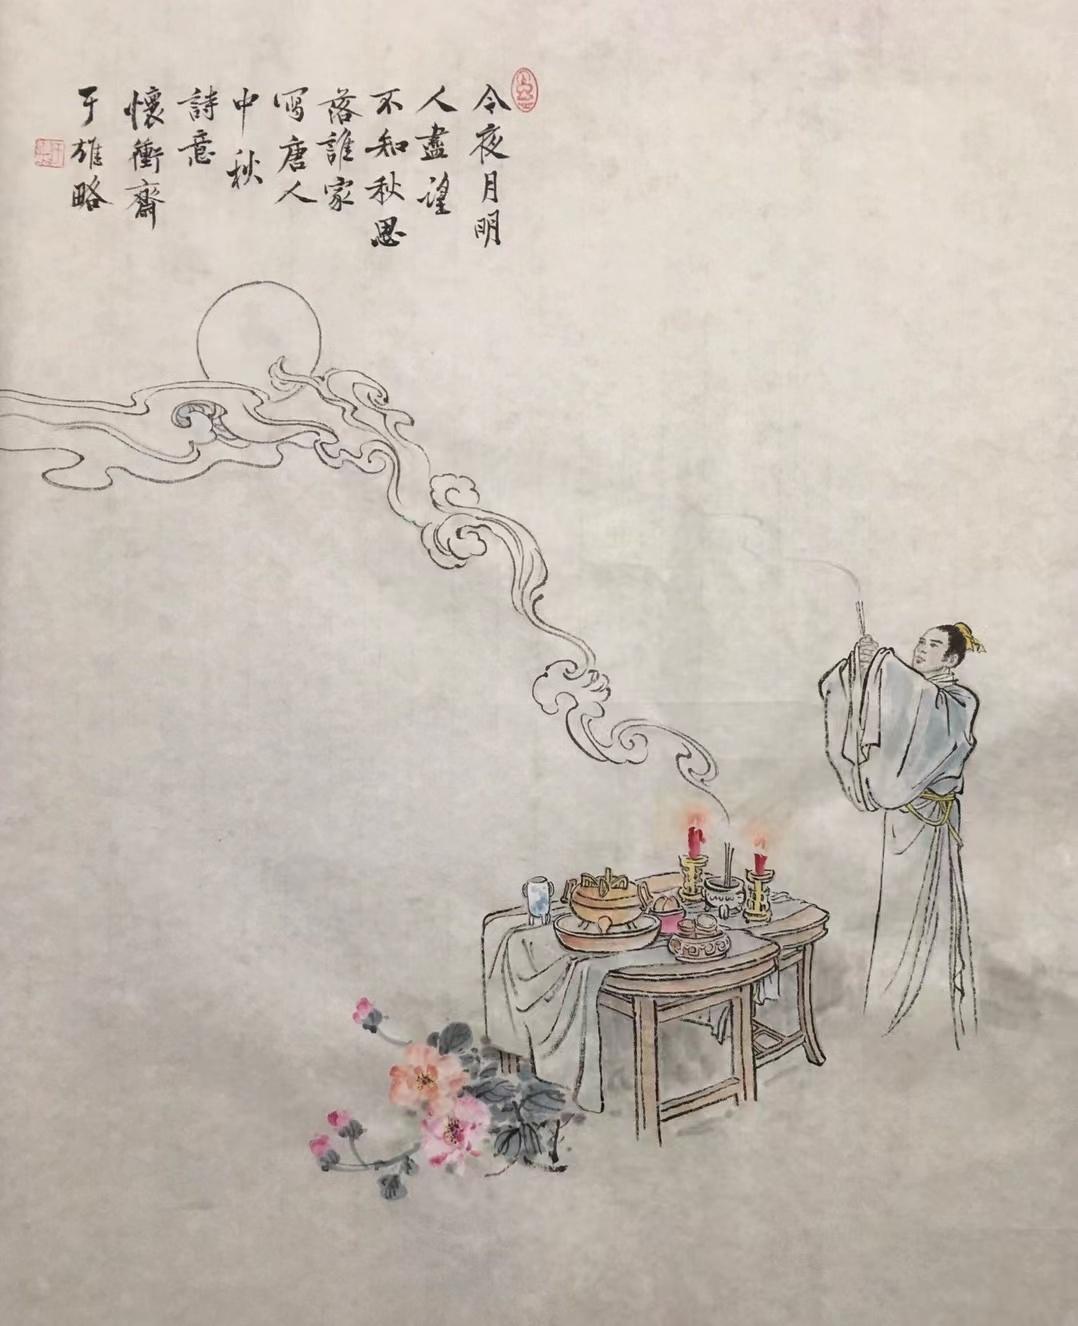 今夜月明
人盡望
不知秋思
落誰家
寫唐人
中秋
詩意
懷衝齋
于雄略